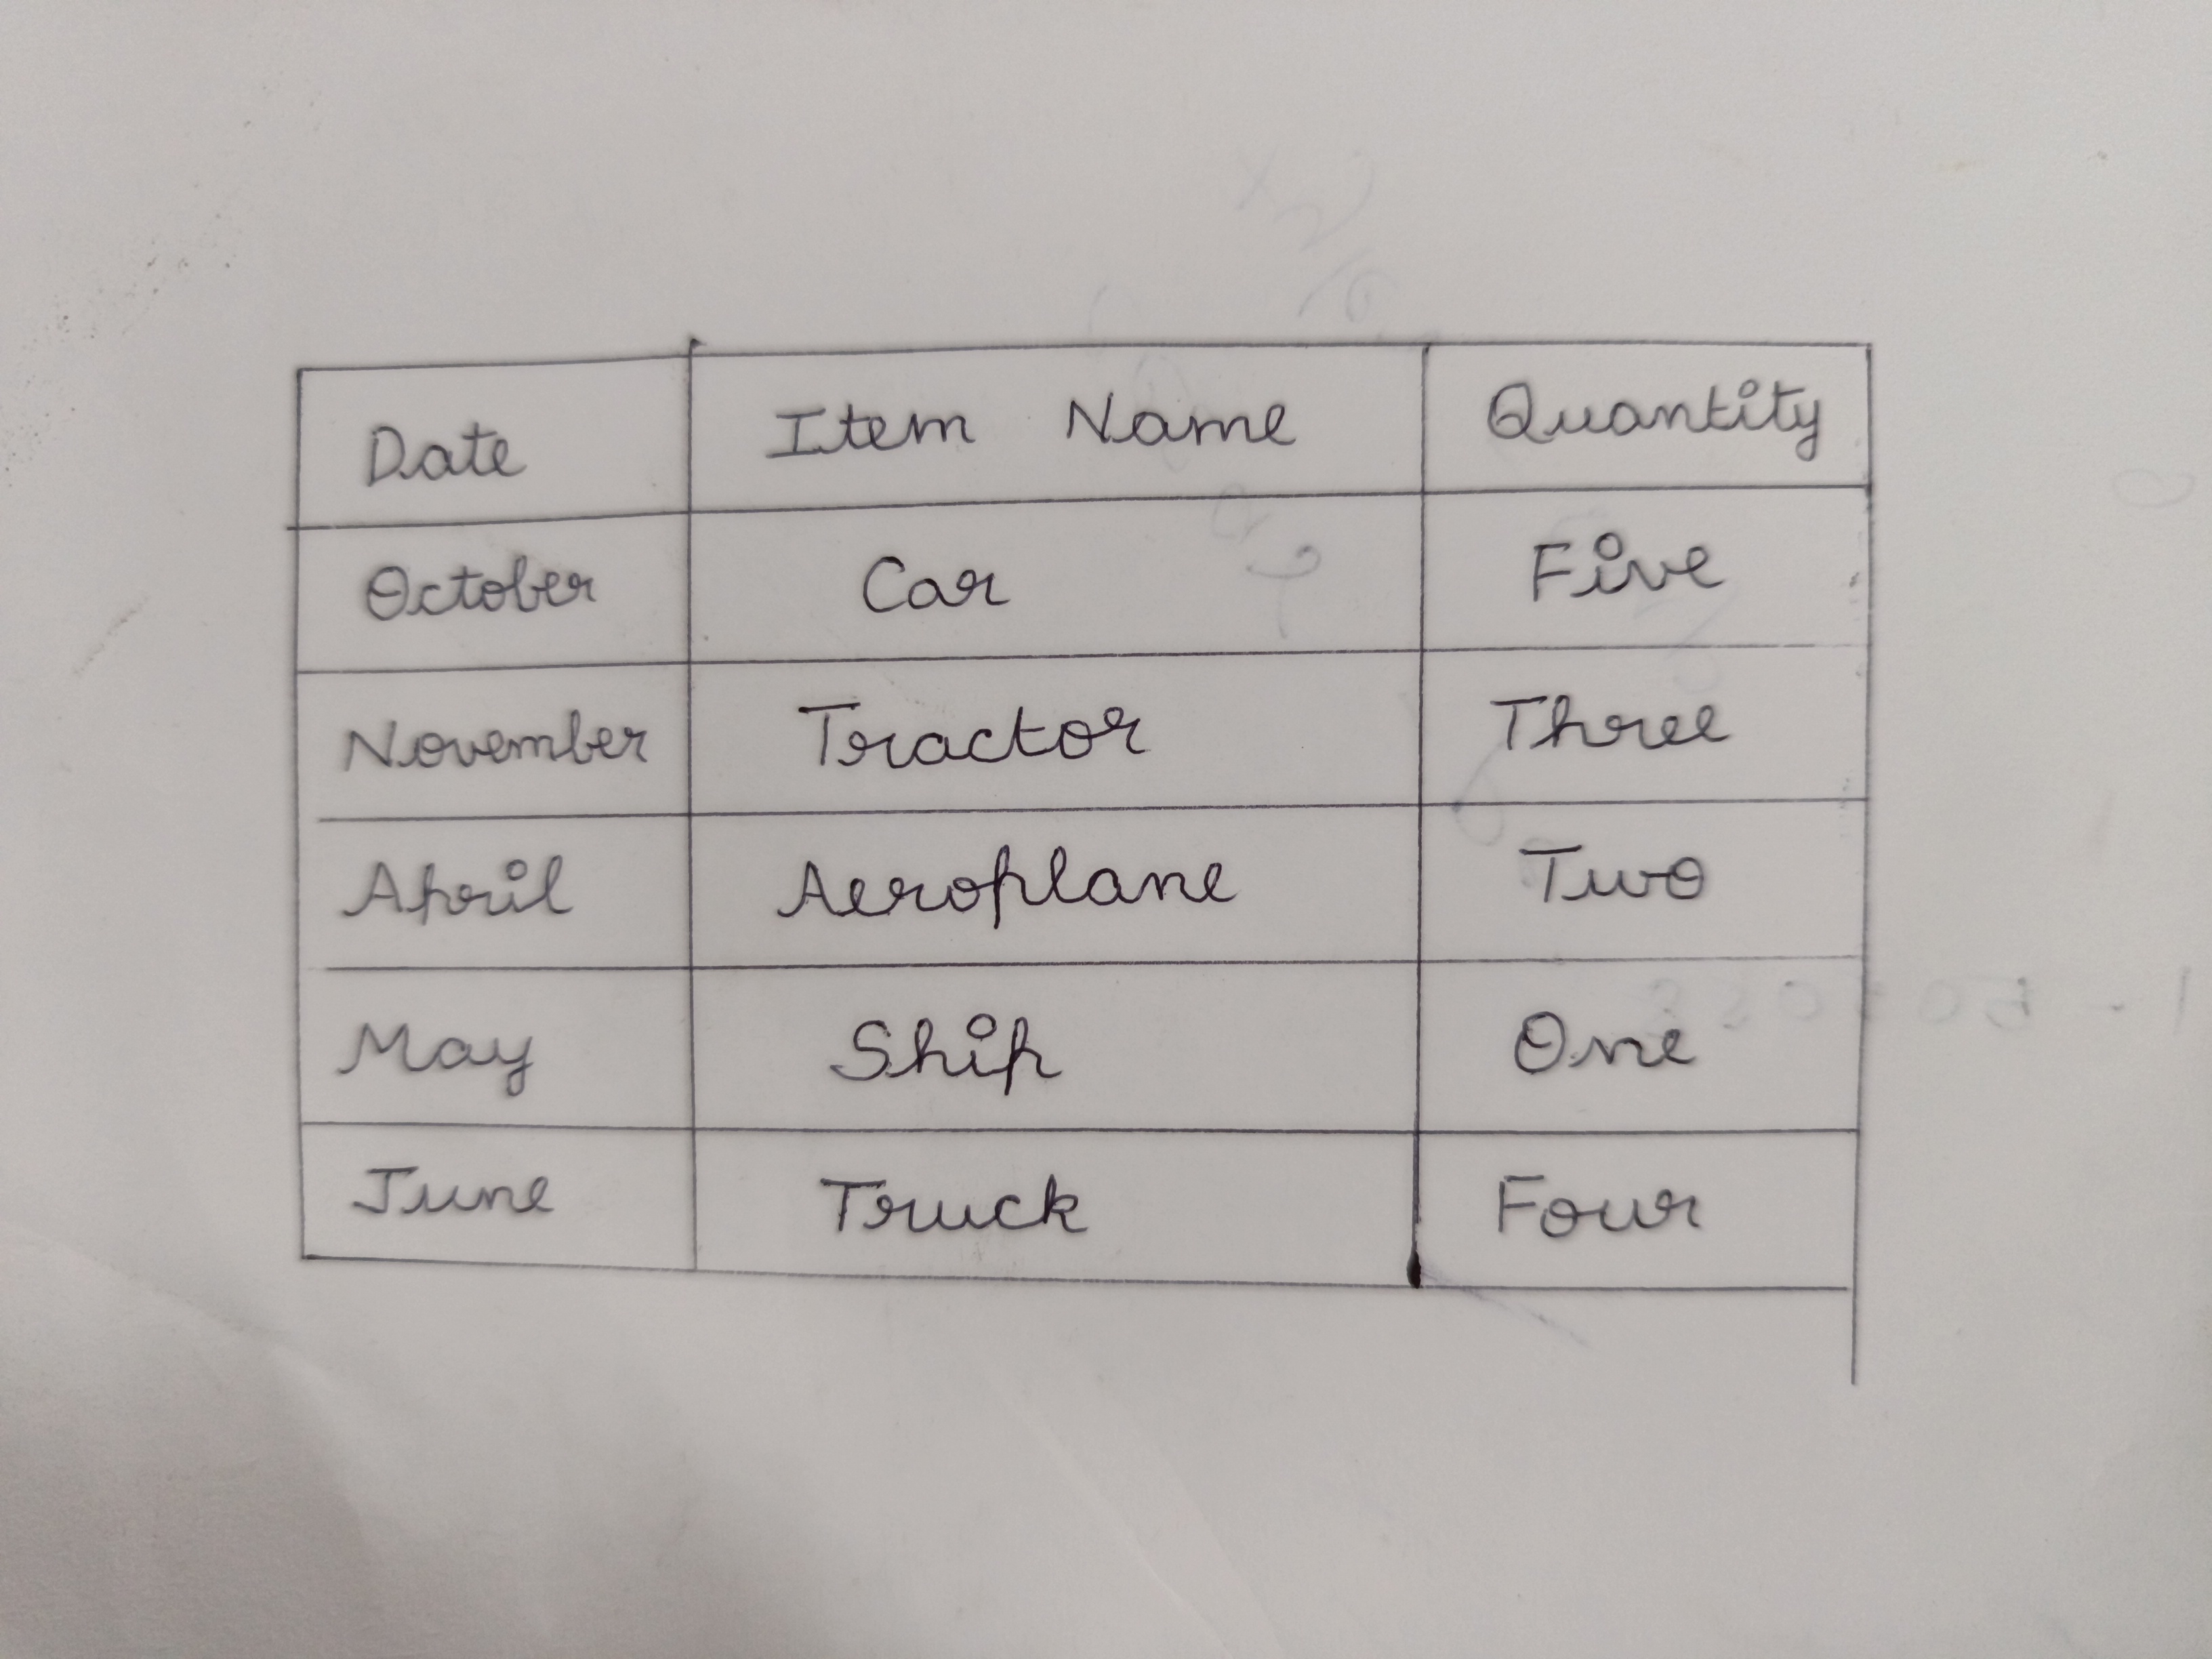 Date Item Name Quantity
October Car Five
November Tractor Three
April Aeroplane Two
May Ship One
June Truck Four